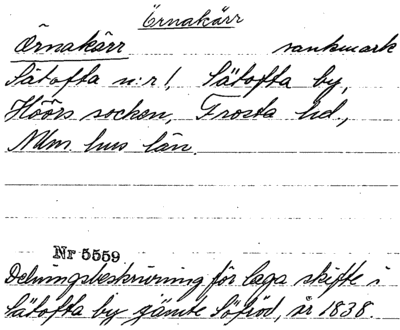 Örnakärr
Örnakärr sankmark
Sätofta n:r 1, Sätofta by,
Höörs socken, Frosta hd,
Malm. hus län.
Nr 5559
Delningsbeskrivning för laga skifte i
Sätofta by jämte Löfröd, år 1838.